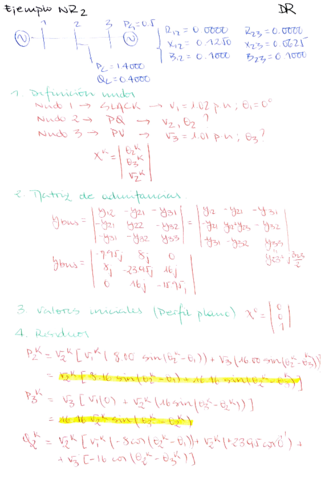 Ejemplo NR2 DR
1 2 3 PG=0.5
PL=1.4000
QL=0.4000
R12=0.0000 R23=0.0000
X12=0.1250 X23=0.0625
B12=0.1000 B23=0.1000
1. Definición nudos
Nudo 1 → SLACK → V1=1.02 p.u ; θ1=0°
Nudo 2 → PQ → V2, θ2 ?
Nudo 3 → PV → V3=1.01 p.u ; θ3 ?
X^K = | θ2^K
θ3^K
V2^K |
2. Matriz de admitancias
Ybus = | y12 -y21 -y31
-y21 y22 -y32
-y31 -y32 y33 | = | y12 -y21 -y31
-y31 -y32 y33 |
Ybus = | 8j 0
8j -23.95j 16j
0 16j -15.95j |
3. Valores iniciales (Perfil plano) X° = | 0
0
1 |
4. Residuos
P2^K = V2^K [V1^K (8.00 sin(θ2^K-θ1)) + V3 (16.00 sin(θ2^K-θ3^K))]
= V2^K [8.16 sin(θ2^K-θ1) + 16.16 sin(θ2^K-θ3^K)]
P3^K = V3 [V1(0) + V2^K (16 sin(θ3^K-θ2^K))]
Q2^K = V2^K [V1^K (-8 cos(θ2^K-θ1)) + V2^K (+23.95 cos0°) +
+ V3 [-16 cos(θ2^K-θ3^K)]